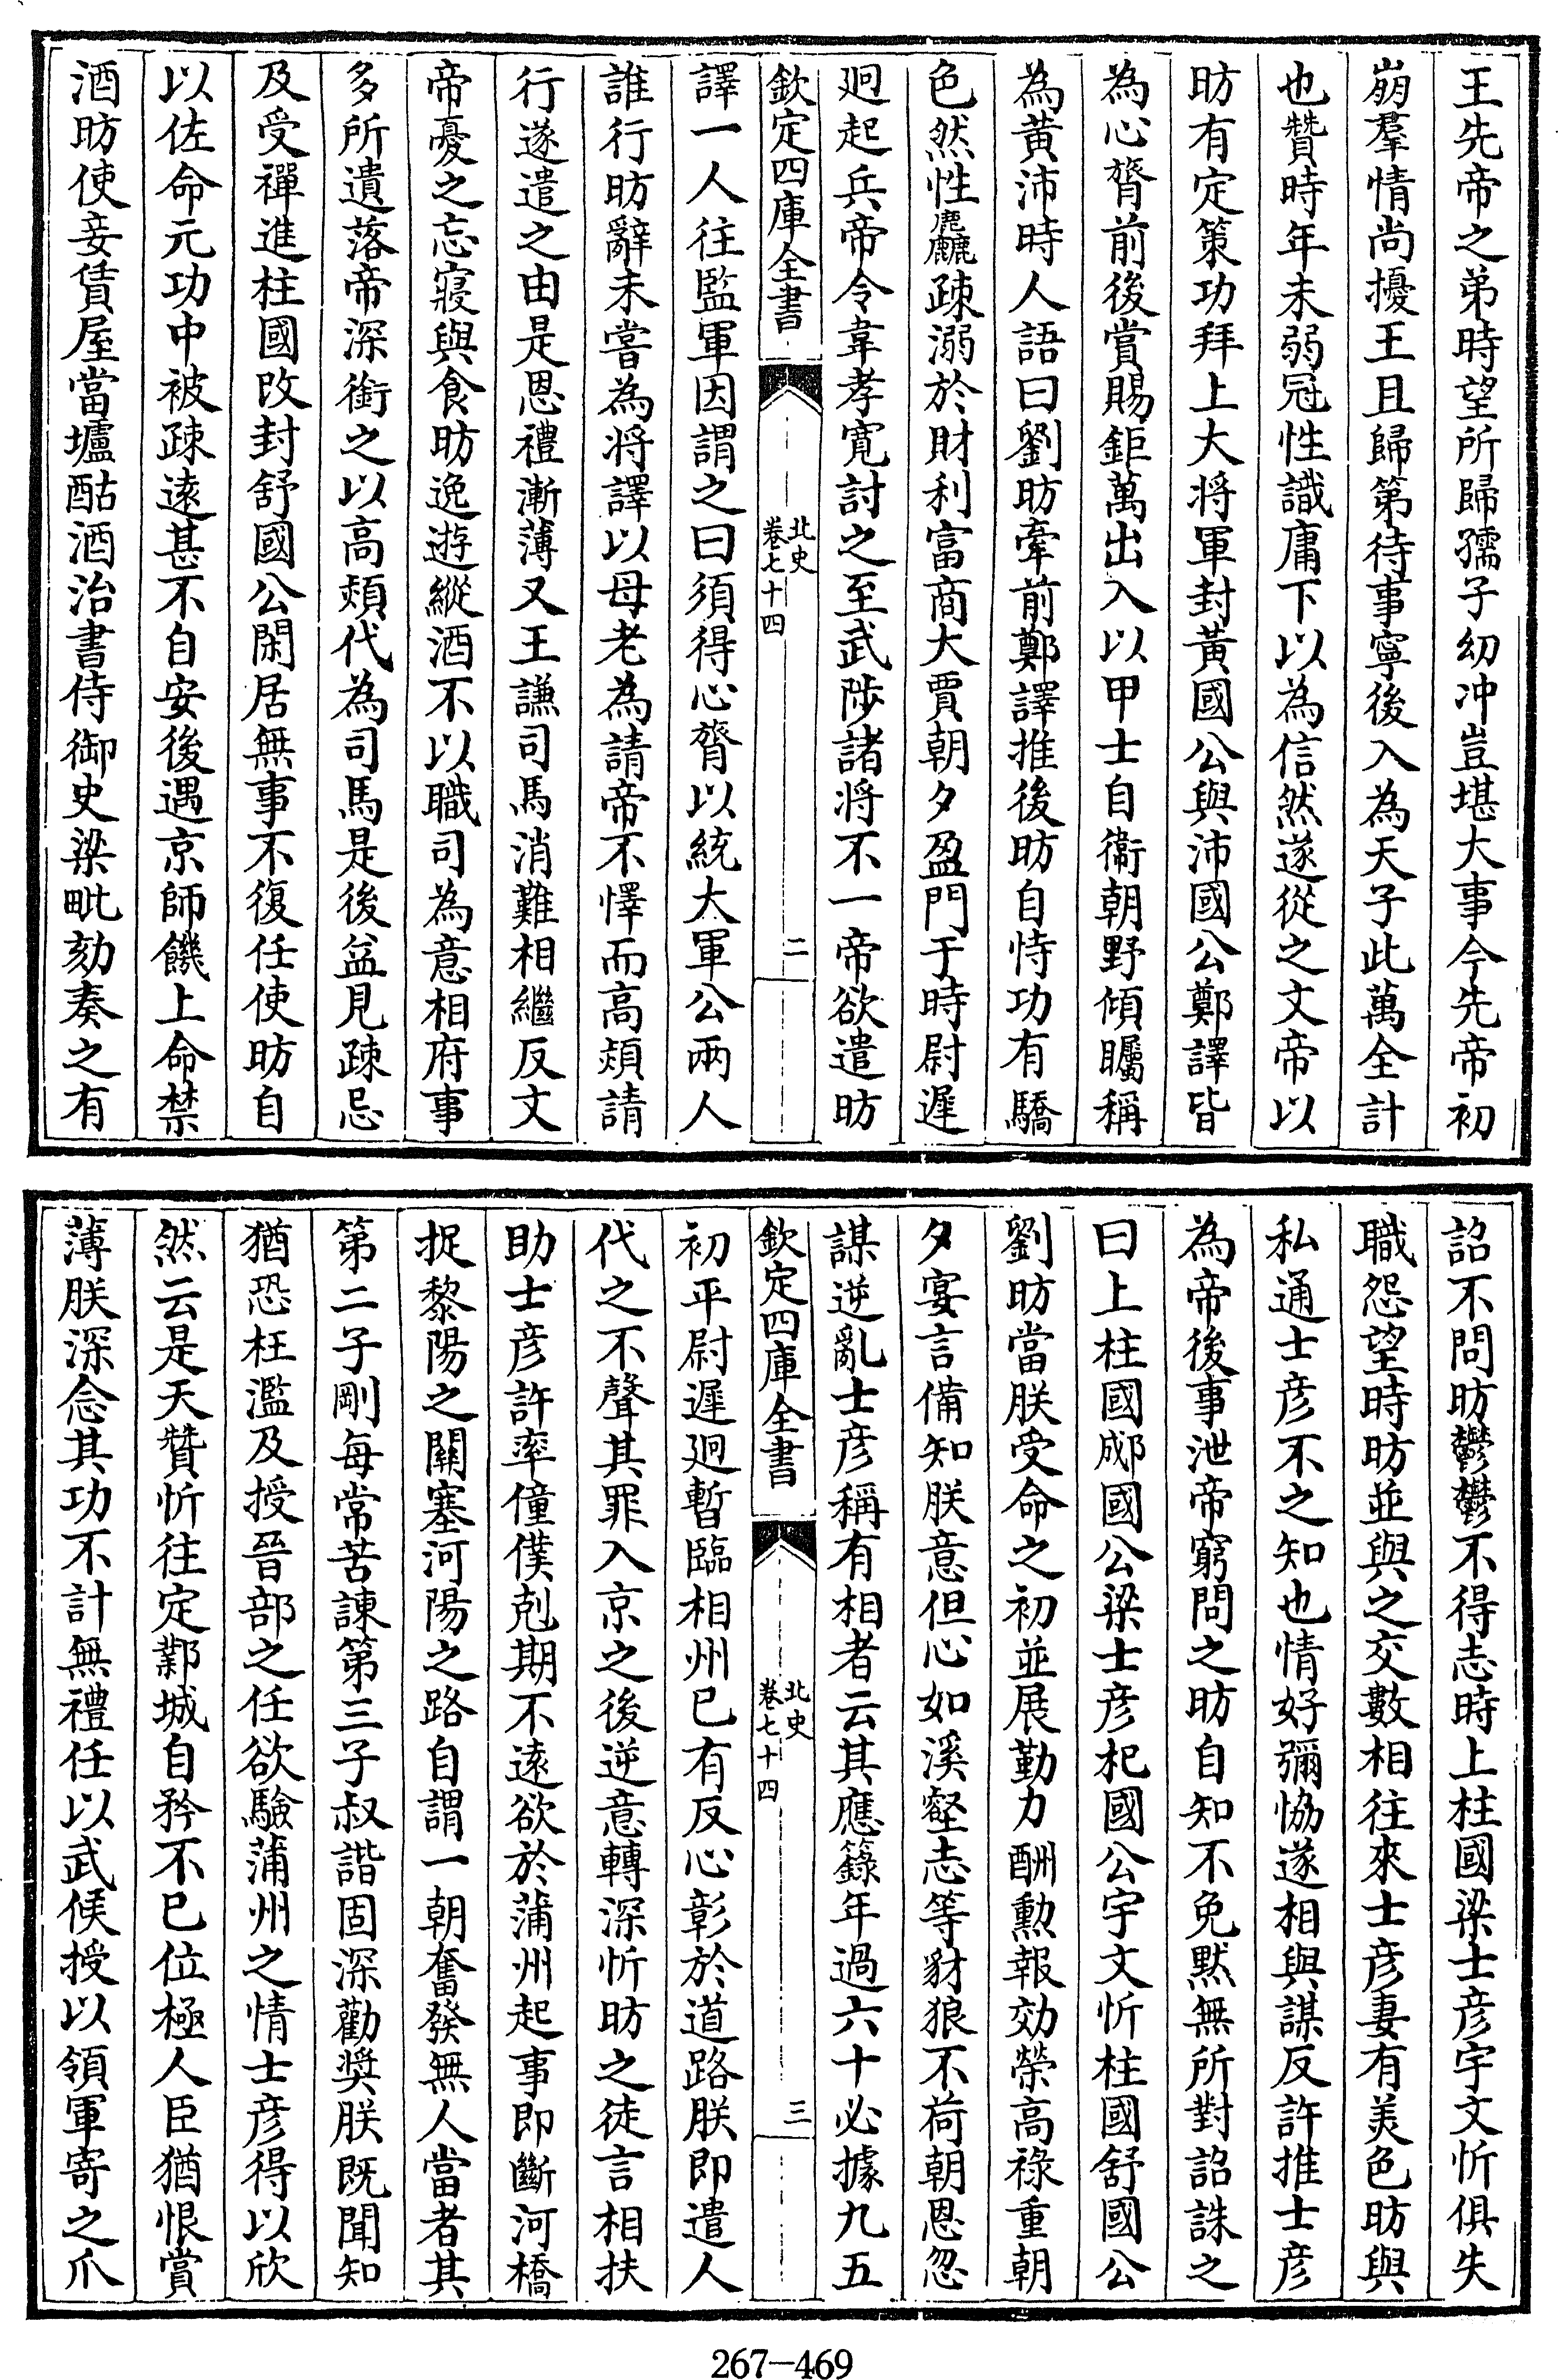 王先帝之弟時望所歸孺子幼沖豈堪大事今先帝初
崩羣情尚擾王且歸第待事寧後入為天子此萬全計
也贊時年未弱冠性識庸下以為信然遂從之文帝以
昉有定策功拜上大將軍封黃國公與沛國公鄭譯皆
為心膂前後賞賜鉅萬出入以甲士自衛朝野傾矚稱
為黃沛時人語曰劉昉牽前鄭譯推後昉自恃功有驕
色然性麤疎溺於財利富商大賈朝夕盈門于時尉遲
迥起兵帝令韋孝寬討之至武陟諸將不一帝欲遣昉
欽定四庫全書
北史
卷七十四
二
譯一人往監軍因謂之曰須得心膂以統大軍公兩人
誰行昉辭未嘗為將譯以母老為請帝不懌而高熲請
行遂遣之由是恩禮漸薄又王謙司馬消難相繼反文
帝憂之忘寢與食昉逸遊縱酒不以職司為意相府事
多所遺落帝深銜之以高熲代為司馬是後益見疎忌
及受禪進柱國改封舒國公閑居無事不復任使昉自
以佐命元功中被疎遠甚不自安後遇京師饑上命禁
酒昉使妾賃屋當壚酤酒治書侍御史梁毗劾奏之有
詔不問昉鬱鬱不得志時上柱國梁士彥宇文忻俱失
職怨望時昉並與之交數相往來士彥妻有美色昉與
私通士彥不之知也情好彌恊遂相與謀反許推士彥
為帝後事泄帝窮問之昉自知不免默無所對詔誅之
曰上柱國郕國公梁士彥杞國公宇文忻柱國舒國公
劉昉當朕受命之初並展勤力酬勳報効榮高祿重朝
夕宴言備知朕意但心如溪壑志等豺狼不荷朝恩忽
謀逆亂士彥稱有相者云其應籙年過六十必據九五
欽定四庫全書
北史
卷七十四
三
初平尉遲迥暫臨相州已有反心彰於道路朕即遣人
代之不聲其罪入京之後逆意轉深忻昉之徒言相扶
助士彥許率僮僕剋期不遠欲於蒲州起事即斷河橋
捉黎陽之關塞河陽之路自謂一朝奮發無人當者其
第二子剛每常苦諫第三子叔諧固深勸奬朕既聞知
猶恐枉濫及授晉部之任欲驗蒲州之情士彥得以欣
然云是天贊忻往定鄴城自矜不已位極人臣猶恨賞
薄朕深念其功不計無禮任以武候授以領軍寄之爪
267-469